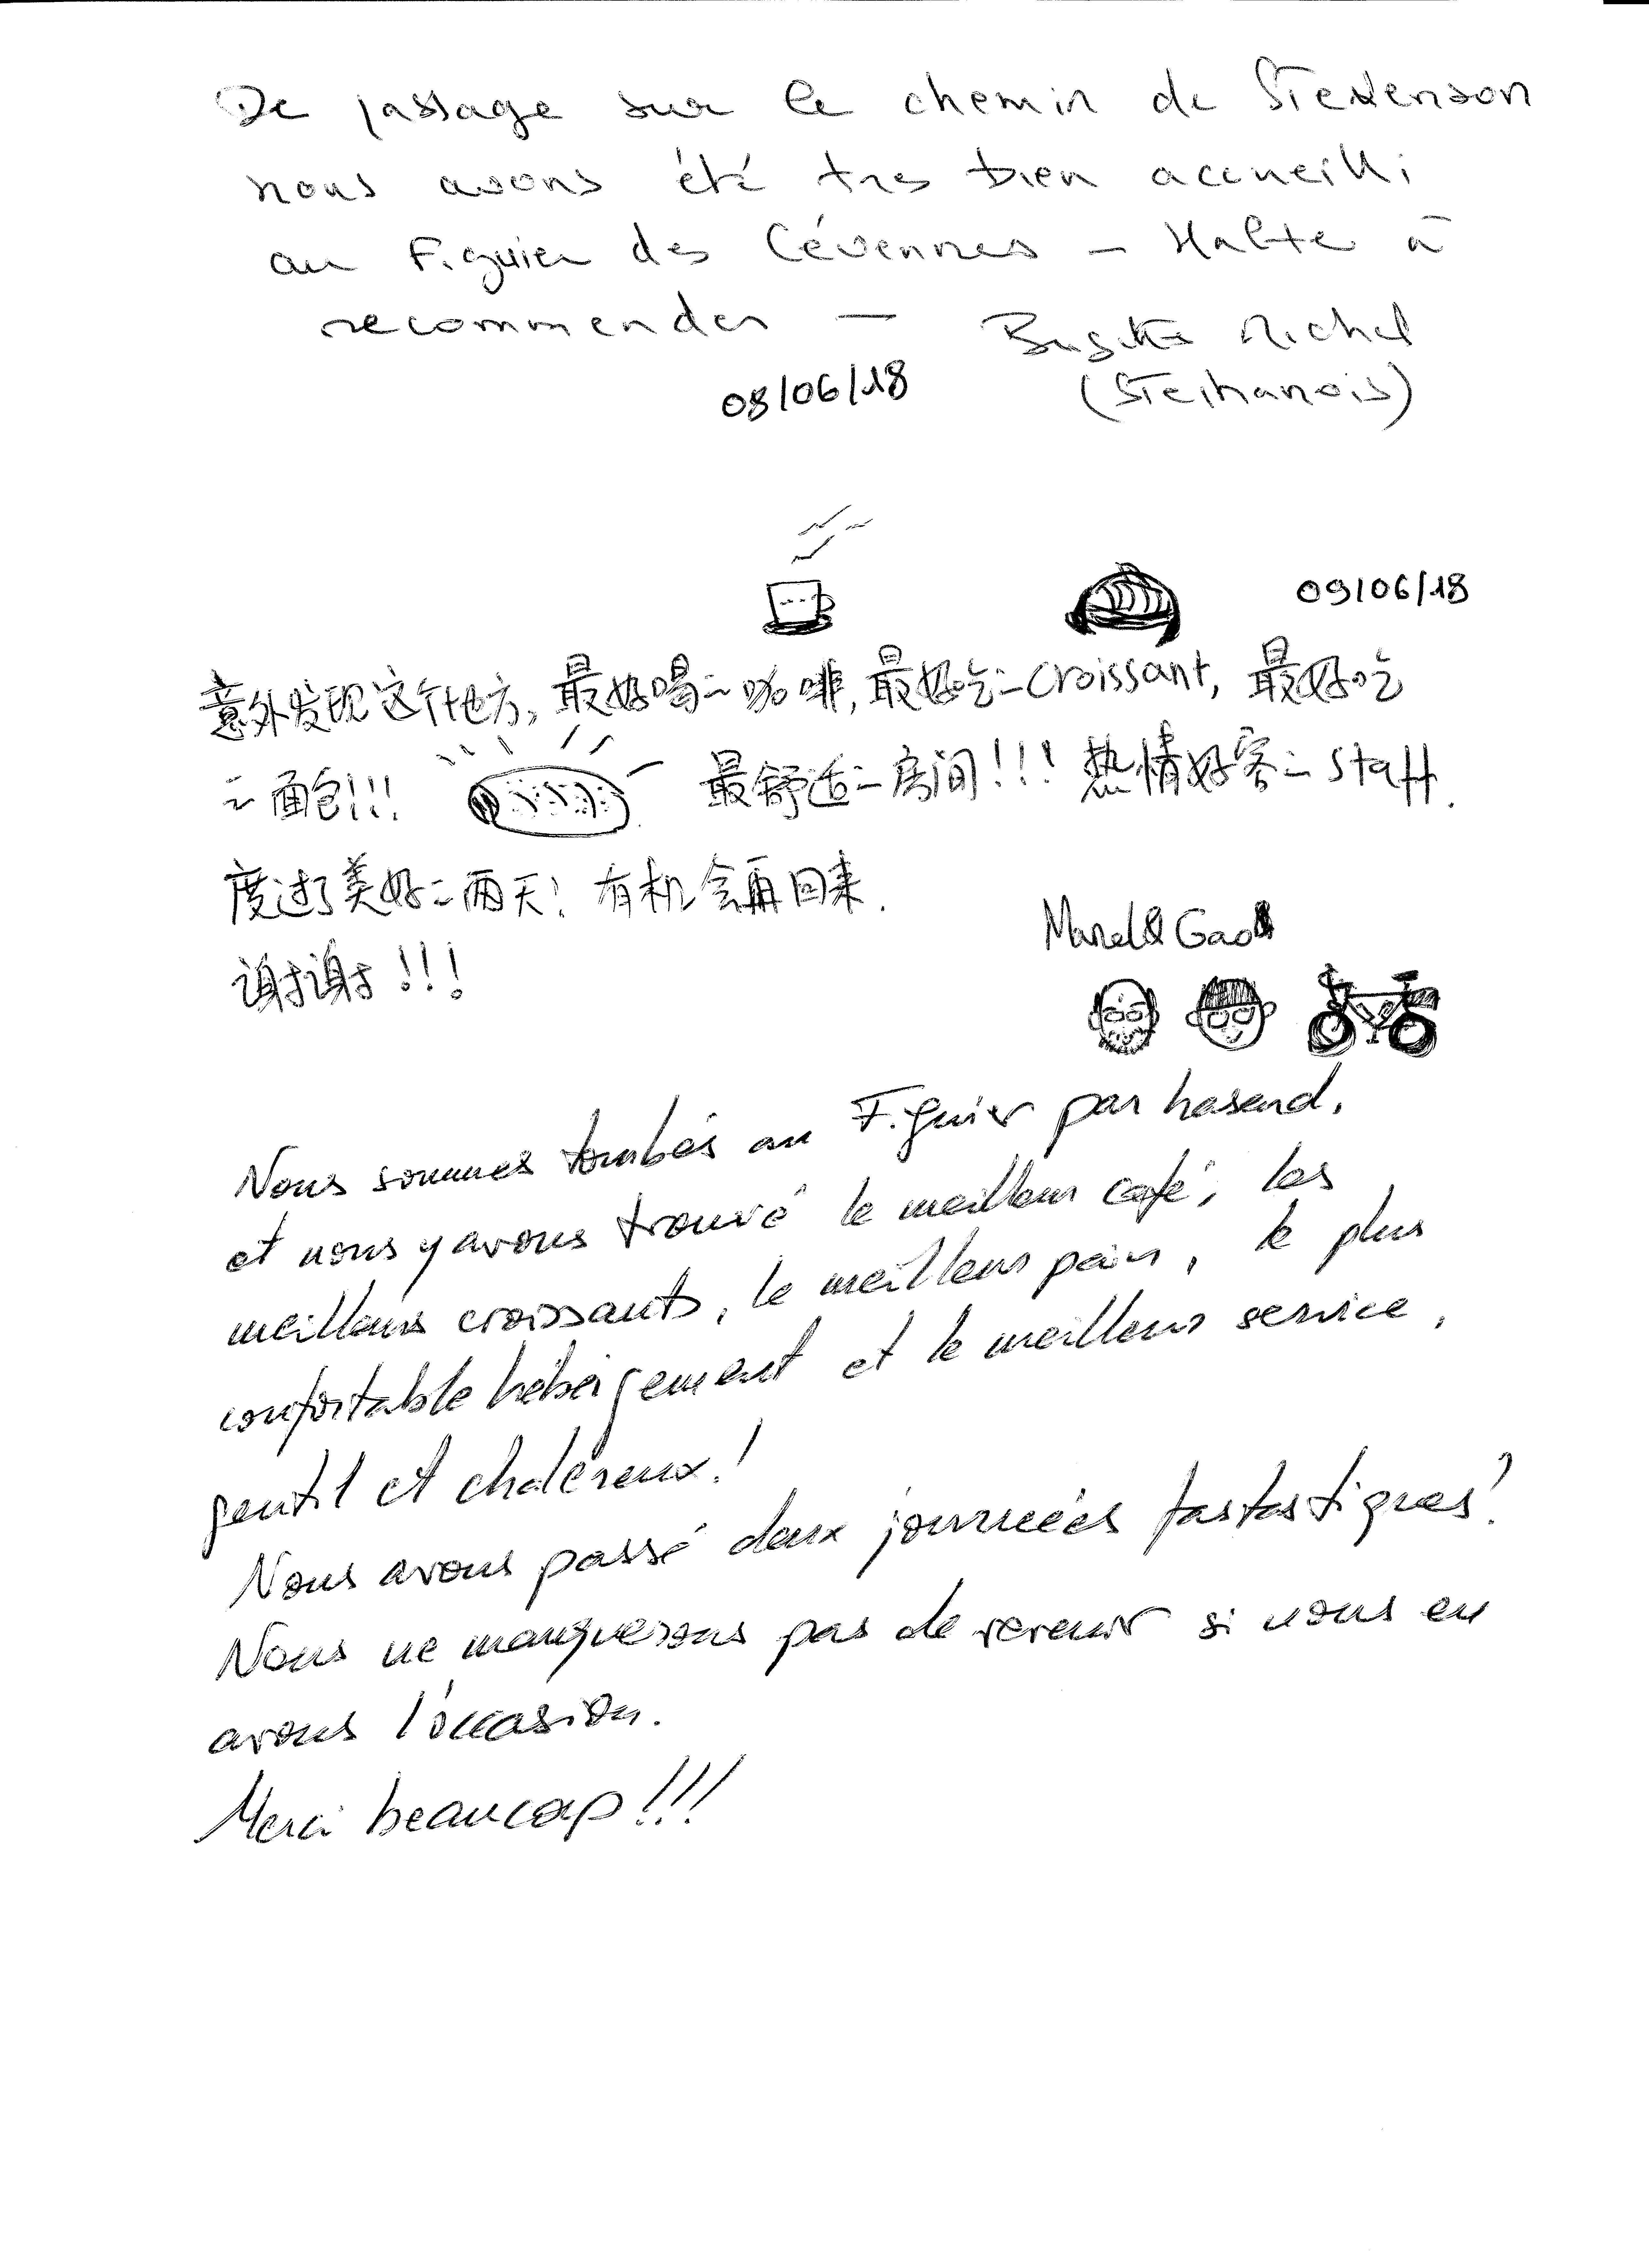 De passage sur le chemin de Stevenson
nous avons été tres bien accueilli
au Figuier des Cévennes - Halte à
recommender -
Brigitte Michel
08/06/18
(Stéphanois)
09/06/18
意外发现这个地方, 最好喝の咖啡, 最好吃のcroissant, 最好吃
の面包!!!
最舒适の房间!!! 热情好客の staff.
度过了美好の两天! 有机会再回来.
谢谢!!!
Marcel & Gao
Nous sommes tombés au Figuier par hasard,
et nous y avons trouvé le meilleur café, les
meilleurs croissants, le meilleurs pain, le plus
confortable hébérgement et le meilleurs service,
gentil et chaléreux!
Nous avons passé deux journées fastastiques!
Nous ne manquerons pas de revenir si nous en
avons l'occasion.
Merci beaucoup!!!